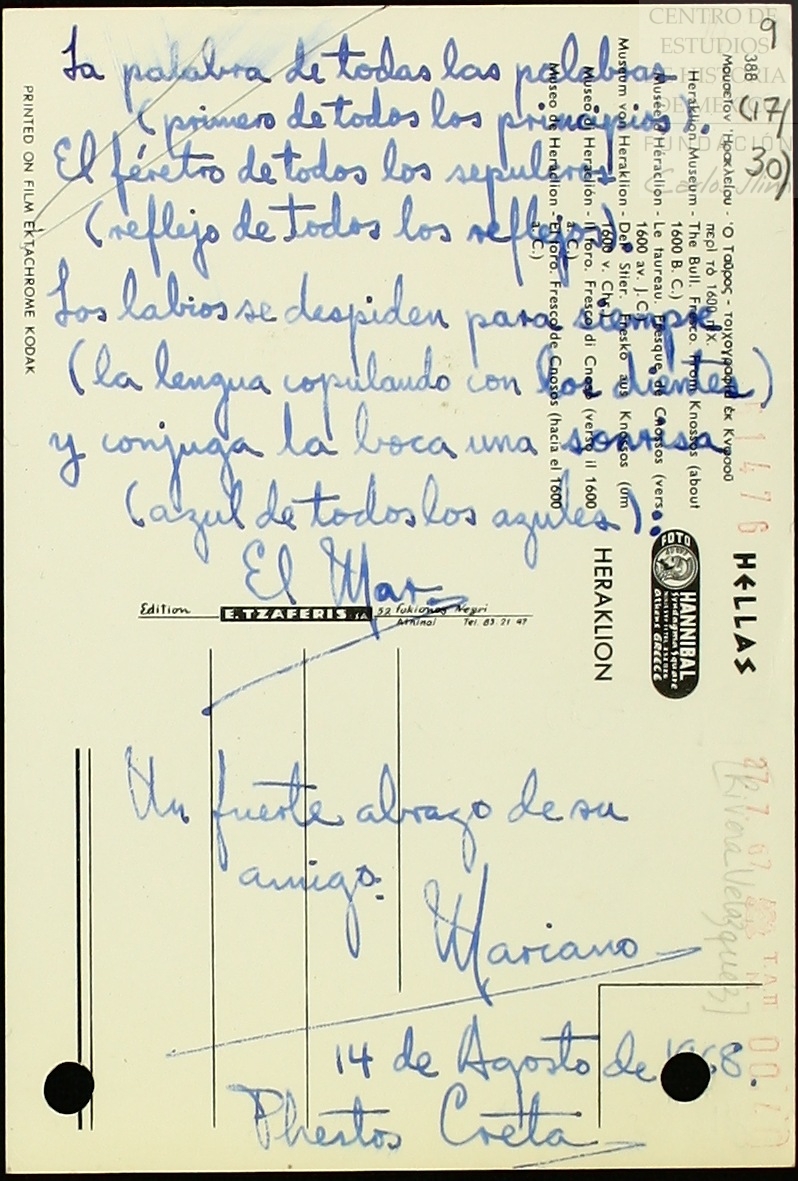 La palabra de todas las palabras
(primero de todos los principios).
El féretro de todos los sepulcros
(reflejo de todos los reflejos).
Los labios se despiden para siempre
(la lengua copulando con los dientes)
y conjuga la boca una sonrisa
(azul de todos los azules):
El Mar
Un fuerte abrazo de su
amigo:
Mariano
14 de Agosto de 1968.
Phestos Creta
9
(17/
30)
CENTRO DE
ESTUDIOS
DE HISTORIA
DE MEXICO
FUNDACIÓN
Carlos Slim
388
Μουσεῖον Ἡρακλείου - Ὁ Ταῦρος - τοιχογραφία ἐκ Κνωσοῦ
περὶ τὸ 1600 π.Χ.
Heraklion Museum - The Bull. Fresco. From Knossos (about
1600 B. C.)
Musée d'Héraclion - Le taureau. Fresque de Cnossos (vers
1600 av. J.C.)
Museum von Heraklion - Der Stier. Fresko aus Knossos (um
1600 v. Chr.)
Museo di Heraclion - Il toro. Fresco di Cnosso (verso il 1600
a. C.)
Museo de Heraclion - El toro. Fresco de Cnosos (hacia el 1600
a. C.)
HELLAS
FOTO
HANNIBAL
Syndagma Square
Athens GREECE
HERAKLION
Edition E. TZAFERIS S.A. 52 Fukionos Negri
Athinai Tel. 83.21 47
PRINTED ON FILM EKTACHROME KODAK
1476
27 7 67
[Rivera Velázquez]